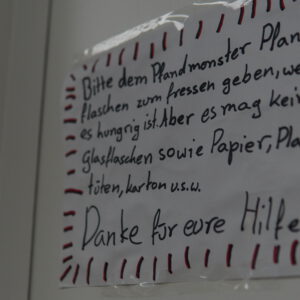 Bitte dem Pfandmonster Pfan
flaschen zum fressen geben, we
es hungrig ist. Aber es mag kei
Glasflaschen sowie Papier, Pla
tüten, karton u.s.w.
Danke für eure Hilfe